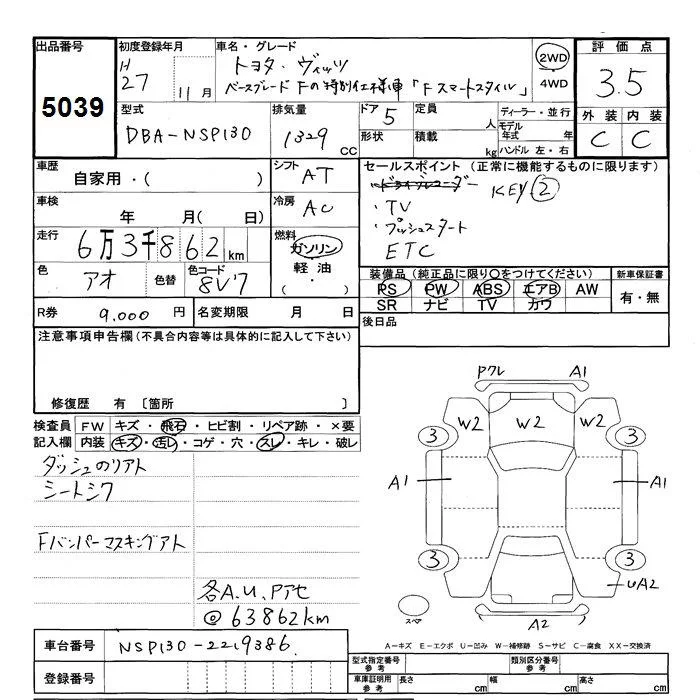 出品番号
5039
初度登録年月
H
27
11月
車名・グレード
トヨタ・ヴィッツ
ベースグレード Fの特別仕様車「Fスマートスタイル」
2WD
4WD
評価点
3.5
外装 内装
C C
型式
DBA-NSP130
排気量
1329
CC
ドア 5
形状
定員
人
積載
kg
ディーラー・並行
モデル年式 年
ハンドル 左・右
車歴
自家用・( )
シフト
AT
車検
年 月( 日)
冷房
AC
走行
6万3千862km
燃料
ガソリン
軽油
( ・ )
色
アオ
色替
色コード
8V7
R券
9,000 円
名変期限 月 日
セールスポイント(正常に機能するものに限ります)
ドライブレコーダー
KEY②
・TV
・プッシュスタート
ETC
装備品(純正品に限り○をつけてください)
PS PW ABS エアB AW
SR ナビ TV カワ
新車保証書
有・無
後日品
注意事項申告欄(不具合内容等は具体的に記入して下さい)
修復歴 有 〔箇所 〕
検査員記入欄
FW キズ・飛石・ヒビ割・リペア跡・×要
内装 キズ・汚レ・コゲ・穴・スレ・キレ・破レ
ダッシュのリアト
シートシワ
Fバンパーマスキングアト
各A.U.Pアセ
@63862km
Pワレ
A1
W2
W2
W2
3
3
A1
A1
3
3
UA2
スペア
A2
A-キズ E-エクボ U-凹み W-補修跡 S-サビ C-腐食 XX-交換済
車台番号
NSP130-2219386
登録番号
型式指定番号
参考
類別区分番号
参考
車庫証明用
参考
長さ cm
幅 cm
高さ cm